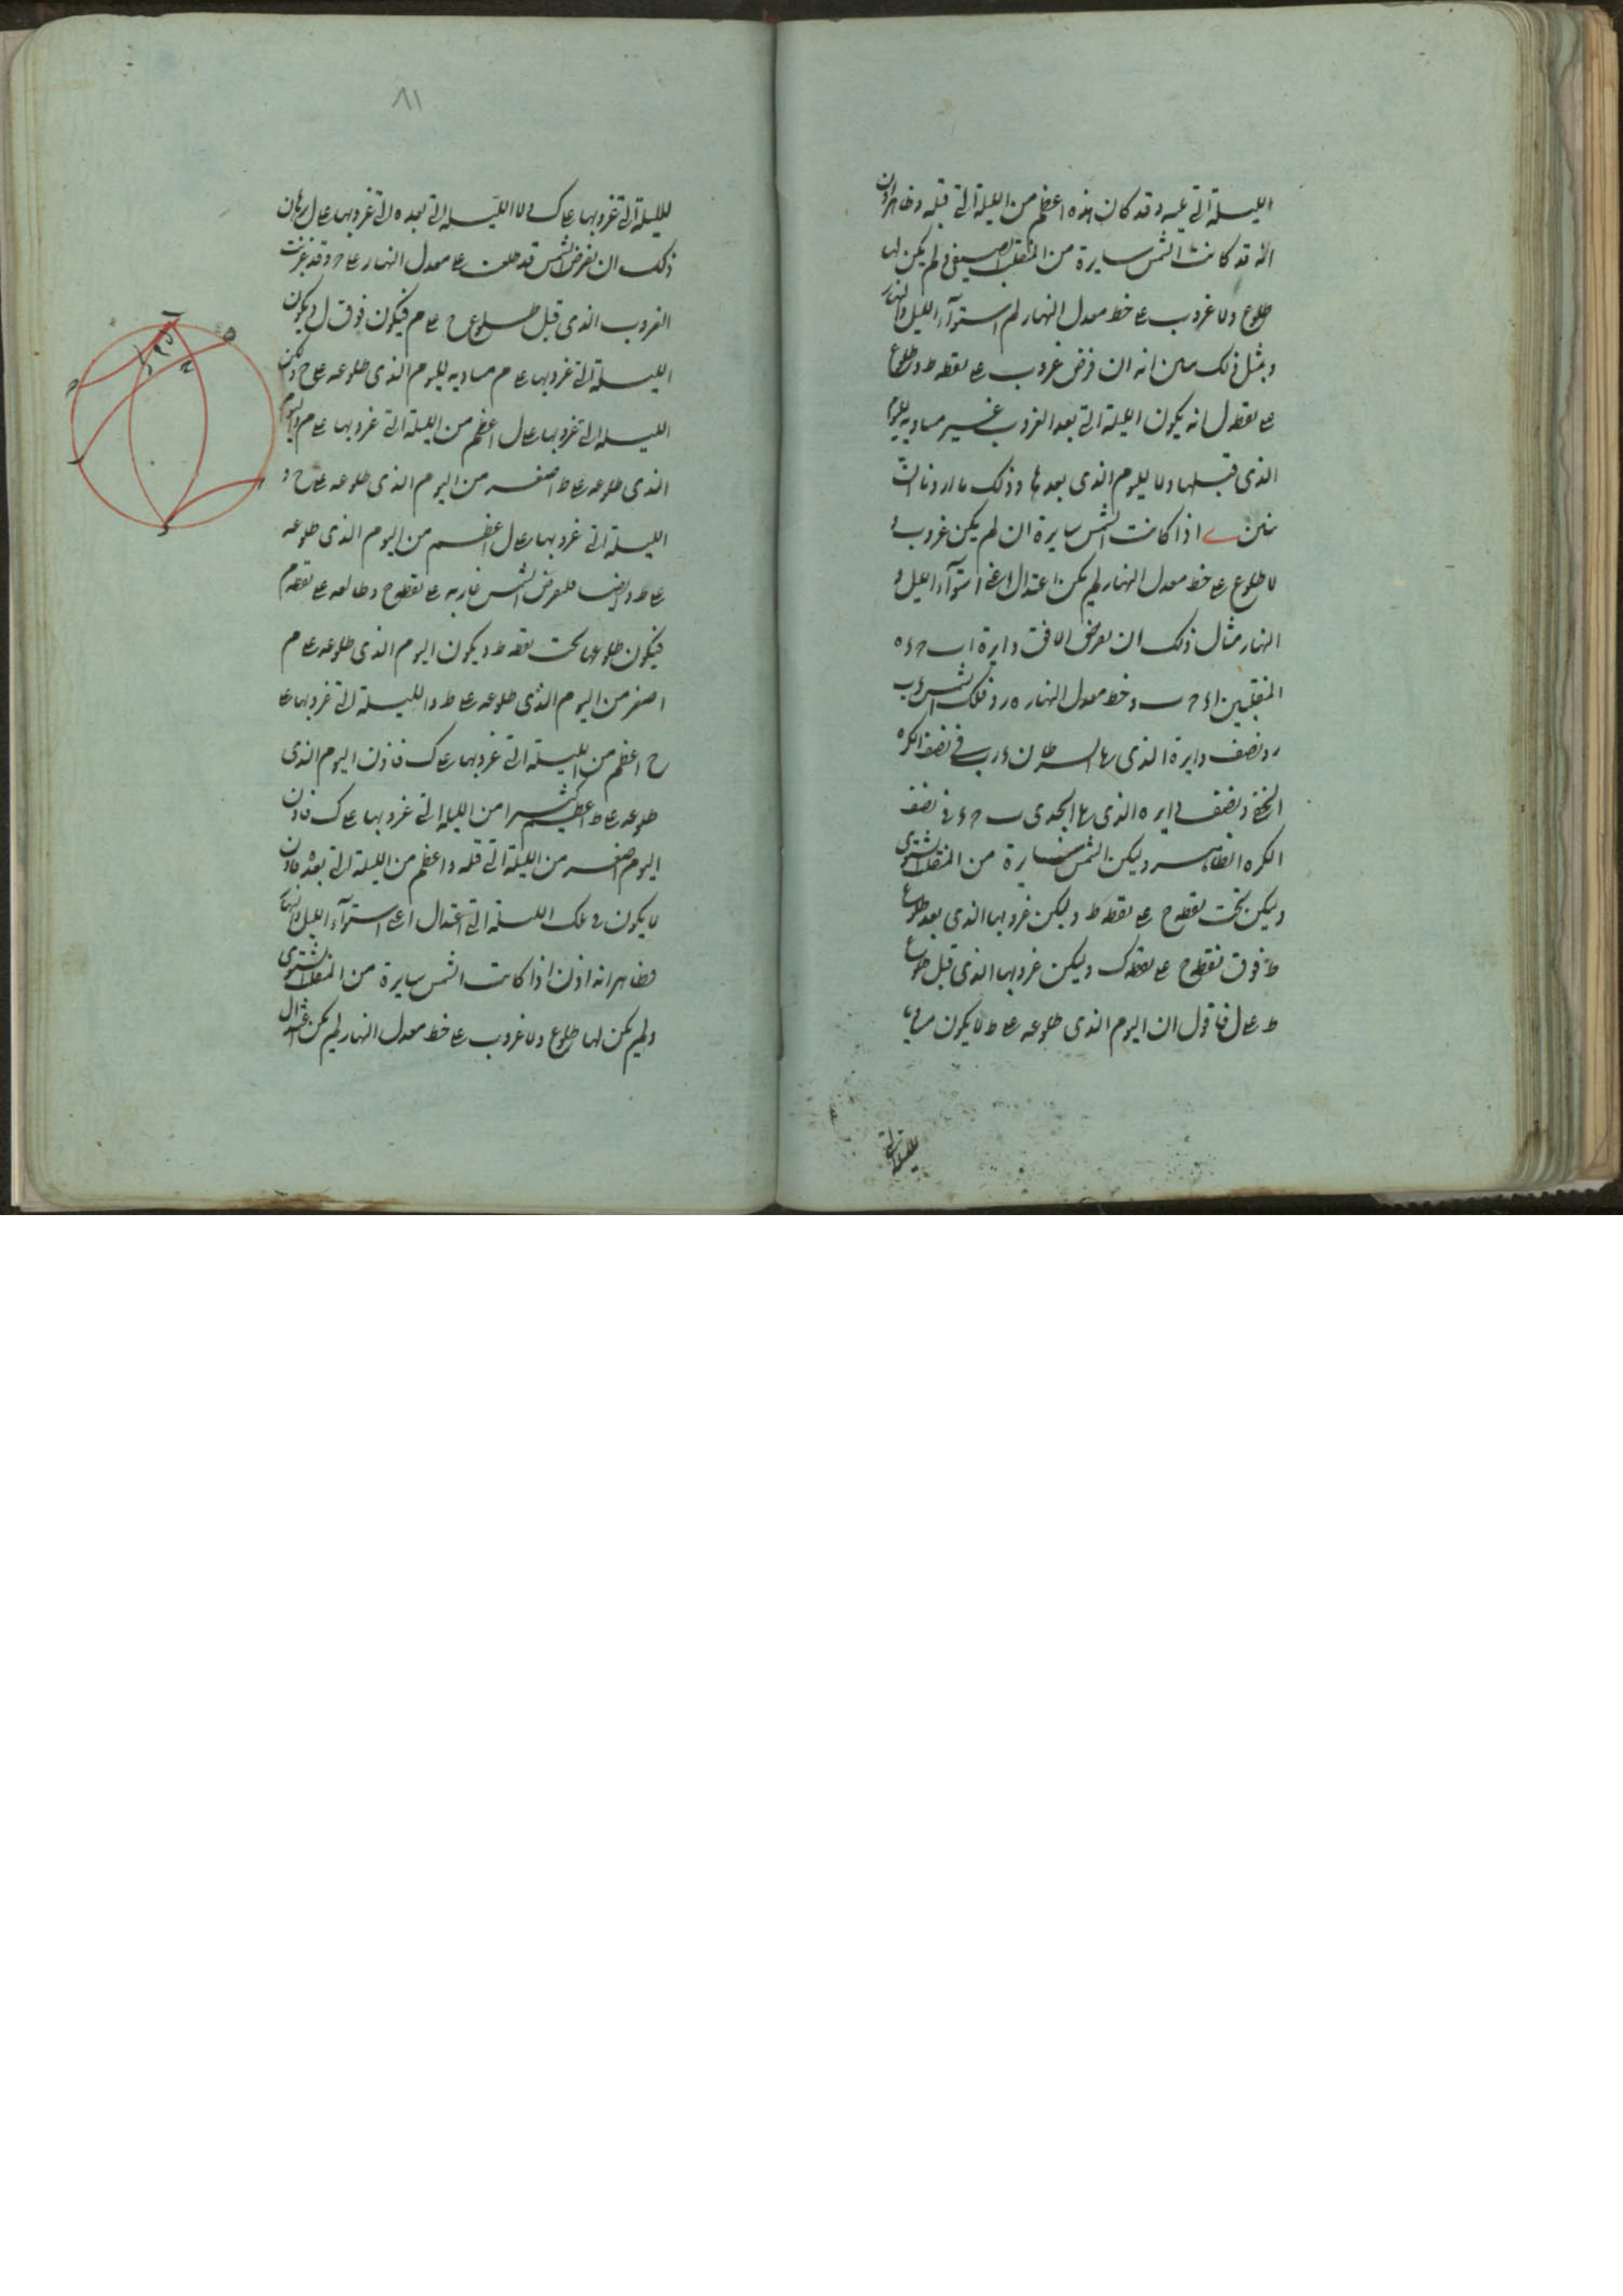 الليلة التى يليه وقد كان هذه اعظم من الليلة التى قبله وظاهر اذن
انه قد كانت الشمس سايرة من المنقلب الصيفى ولم يكن لها
طلوع ولا غروب على خط معدل النهار لم استوآء الليل والنهار
وبمثل ذلك يبين انه ان فرض غروب على نقطه ط وطلوع
على نقطه ل انه يكون الليلة التى بعد الغروب غير مساويه لليوم
الذى قبلها ولا لليوم الذى بعدها وذلك ما اردنا ان
نبين ى اذا كانت الشمس سايرة ان لم يكن غروب و
لا طلوع على خط معدل النهار لم يكن اعتدال اعنى استوآء الليل و
النهار مثال ذلك ان نعرض الافق دايرة اب ح د ه
المنقلبين ا د ح ب وخط معدل النهار ه ر وفلك الشمس د ب
ر ونصف دايرة الذى يلى السرطان د ر ب فى نصف الكره
الخفى ونصف دايره الذى يلى الجدى ب ح د فى نصف
الكره الظاهر وليكن الشمس سايرة من المنقلب الشتوى
وليكن تحت نقطه ح على نقطه ط وليكن غروبها الذى بعد طلوع
ط فوق نقطه ح على نقطه ك وليكن غروبها الذى قبل طلوع
ط على ل فاقول ان اليوم الذى طلوعه على ط لا يكون مساويا
لليلة التى
٨١
لليلة التى غروبها على ك ولا الليلة التى بعده التى غروبها على ل برهان
ذلك ان نعرض الشمس قد طلعت على معدل النهار على ح وقد غربت
الغروب الذى قبل طلوع ح على م فيكون فوق ل ويكون
الليلة التى غروبها على م مساويه لليوم الذى طلوعه على ح ولكن
الليلة التى غروبها على ل اعظم من الليلة التى غروبها على م واليوم
الذى طلوعه على ط اصغر من اليوم الذى طلوعه على ح و
الليلة التى غروبها على ل اعظم من اليوم الذى طلوعه
على ط وايضا فلنعرض الشمس غاربه على نقطه ح وطالعه على نقطه م
فيكون طلوعها تحت نقطه ط ويكون اليوم الذى طلوعه على م
اصغر من اليوم الذى طلوعه على ط والليلة التى غروبها على
ح اعظم من الليلة التى غروبها على ك فاذن اليوم الذى
طلوعه على ط اعظم كثيرا من الليلة التى غروبها على ك فاذن
اليوم اصغر من الليلة التى قبله واعظم من الليلة التى بعده فاذن
لا يكون فى تلك الليلة التى اعتدال اعنى استوآء الليل والنهار
فظاهر انه اذن اذا كانت الشمس سايرة من المنقلب الشتوى
ولم يكن لها طلوع ولا غروب على خط معدل النهار لم يكن اعتدال